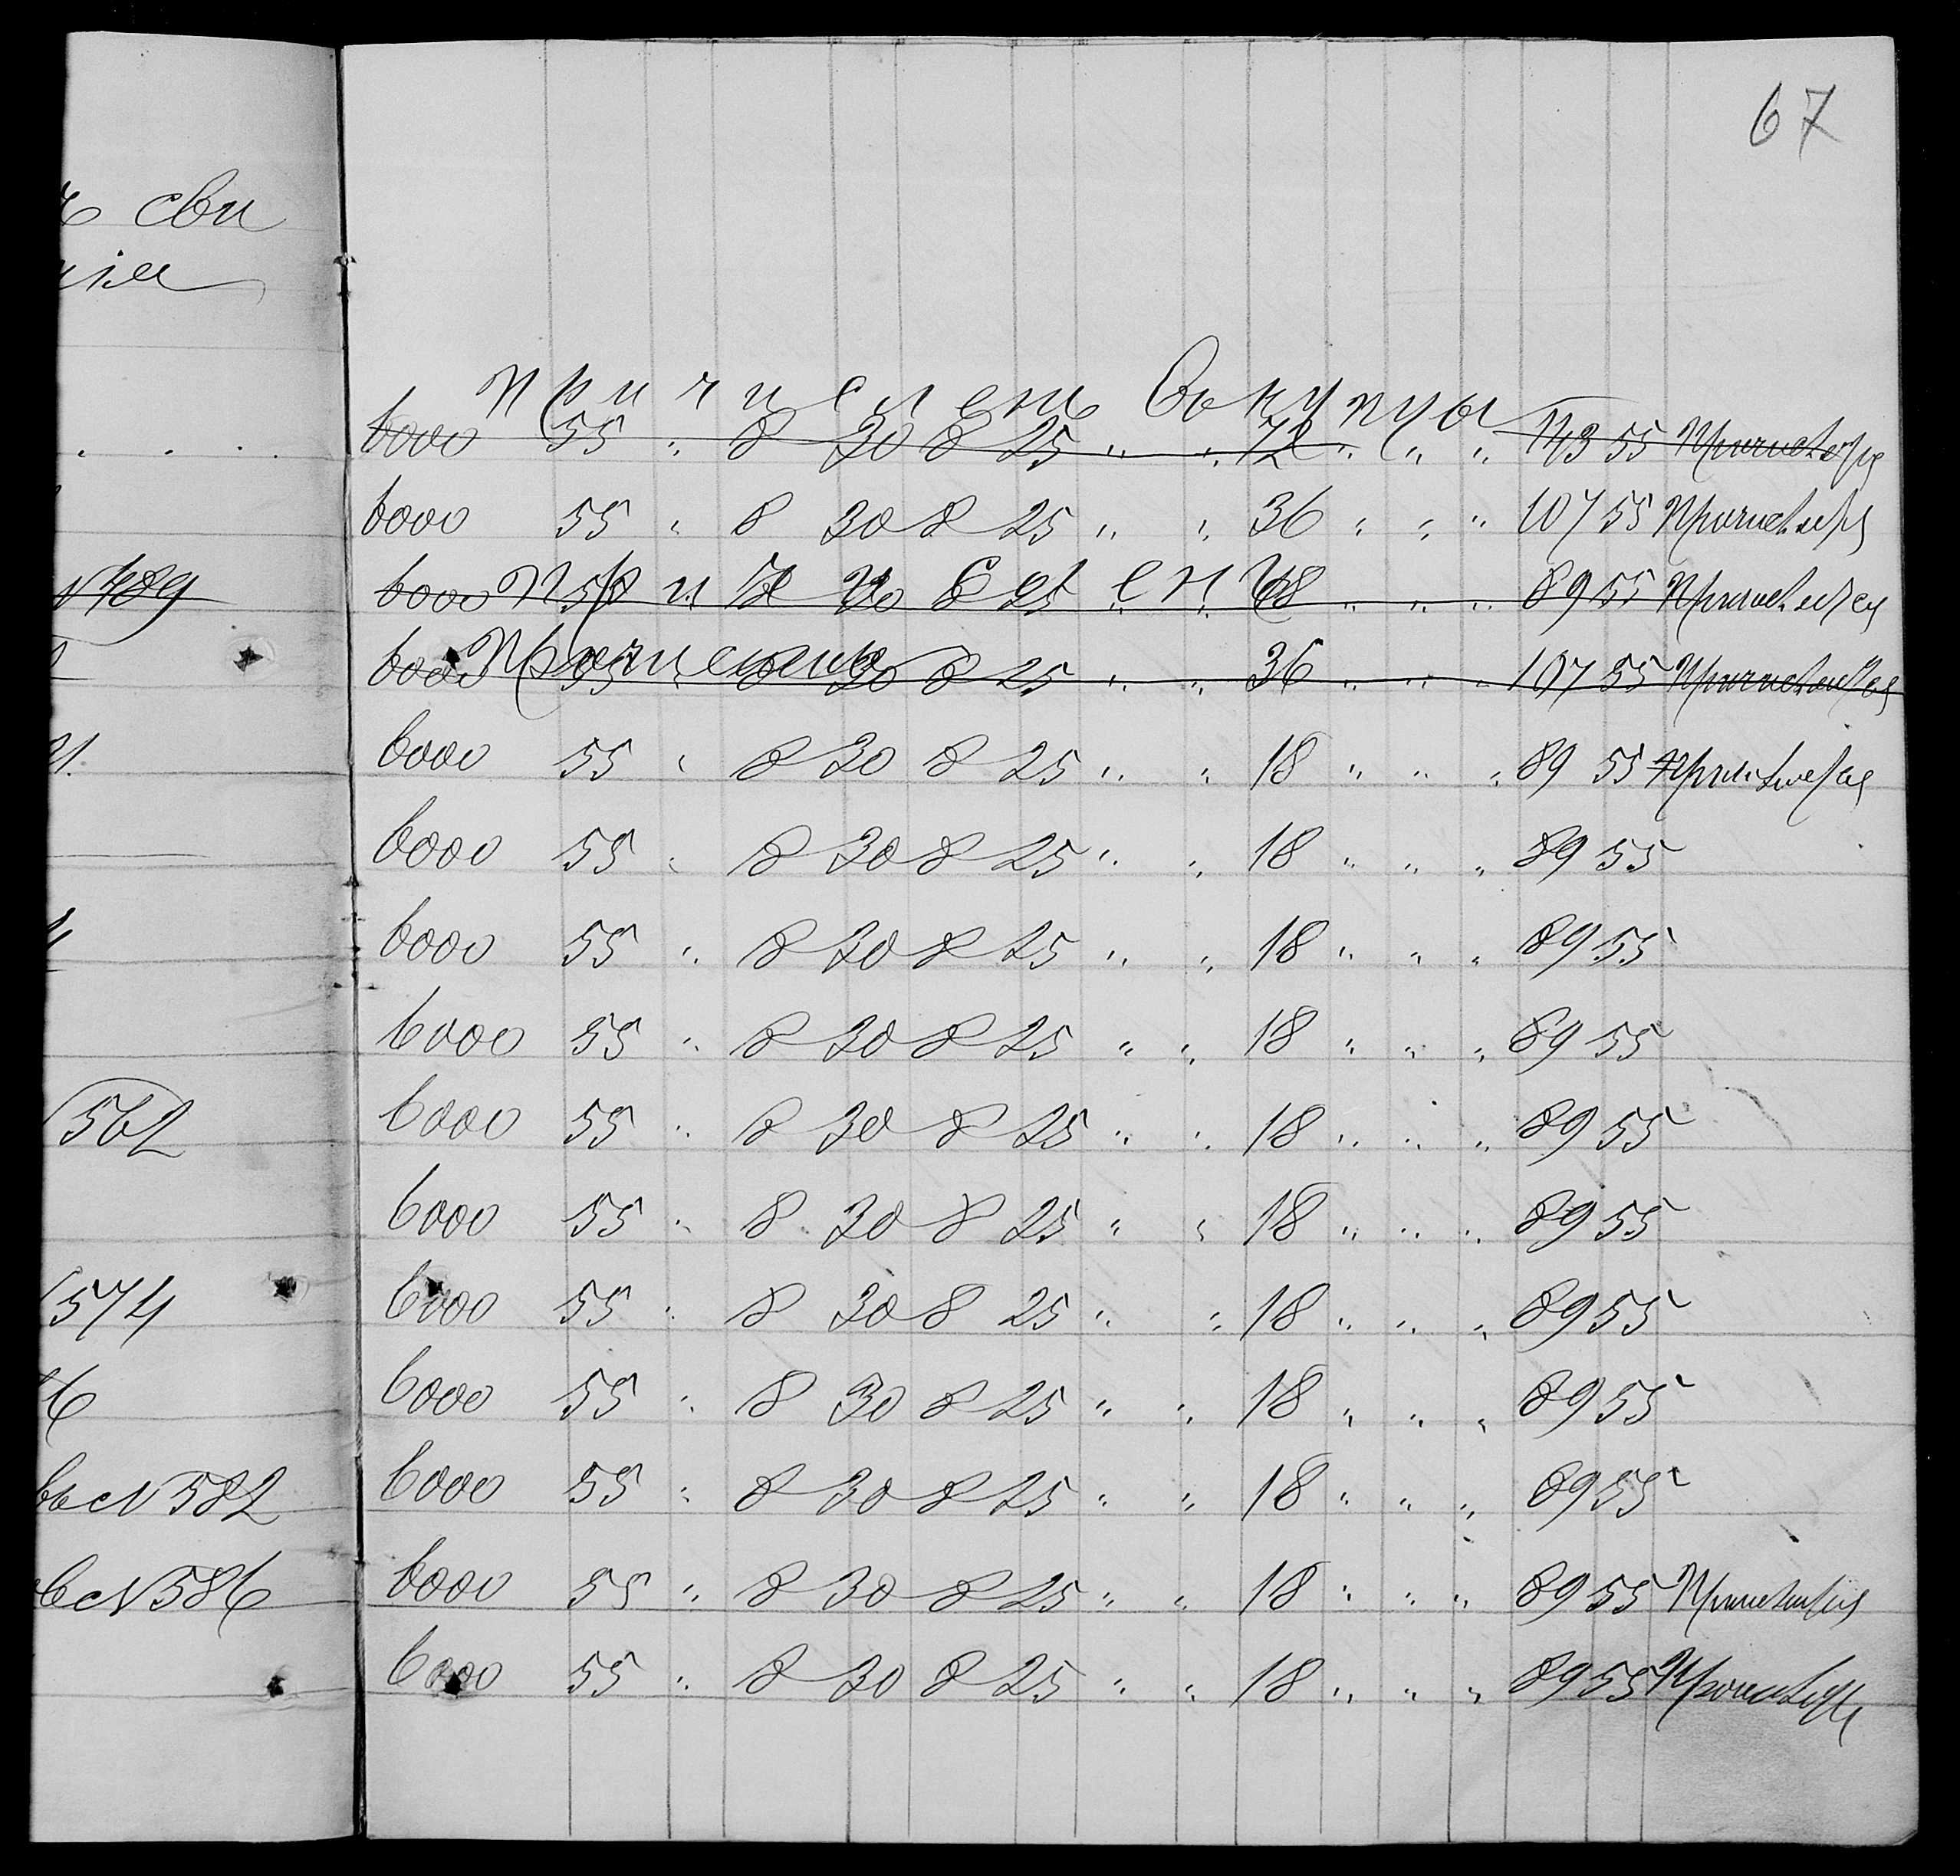 67
сви
нія
Причисленъ Во купцы
6000 55 „ 8 30 8 25 „ „ 72 „ „ „ 143 55 Причисляется
6000 55 „ 8 30 8 25 „ „ 36 „ „ „ 107 55 Причисляется
N 489
6000 55 „ 8 30 8 25 „ „ 18 „ „ „ 89 55 Причисляется
Причислен
6000 55 „ 8 30 8 25 „ „ 36 „ „ „ 107 55 Причисляется
Причислень
21.
6000 55 „ 8 30 8 25 „ „ 18 „ „ „ 89 55 Причисляется
6000 55 „ 8 30 8 25 „ „ 18 „ „ „ 89 55
6000 55 „ 8 30 8 25 „ „ 18 „ „ „ 89 55
6000 55 „ 8 30 8 25 „ „ 18 „ „ „ 89 55
562
6000 55 „ 8 30 8 25 „ „ 18 „ „ „ 89 55
6000 55 „ 8 30 8 25 „ „ 18 „ „ „ 89 55
574
6000 55 „ 8 30 8 25 „ „ 18 „ „ „ 89 55
6
6000 55 „ 8 30 8 25 „ „ 18 „ „ „ 89 55
въ N 582
6000 55 „ 8 30 8 25 „ „ 18 „ „ „ 89 55
въ N 586
6000 55 „ 8 30 8 25 „ „ 18 „ „ „ 89 55 Причисляется
6000 55 „ 8 30 8 25 „ „ 18 „ „ „ 89 55 Причисляется